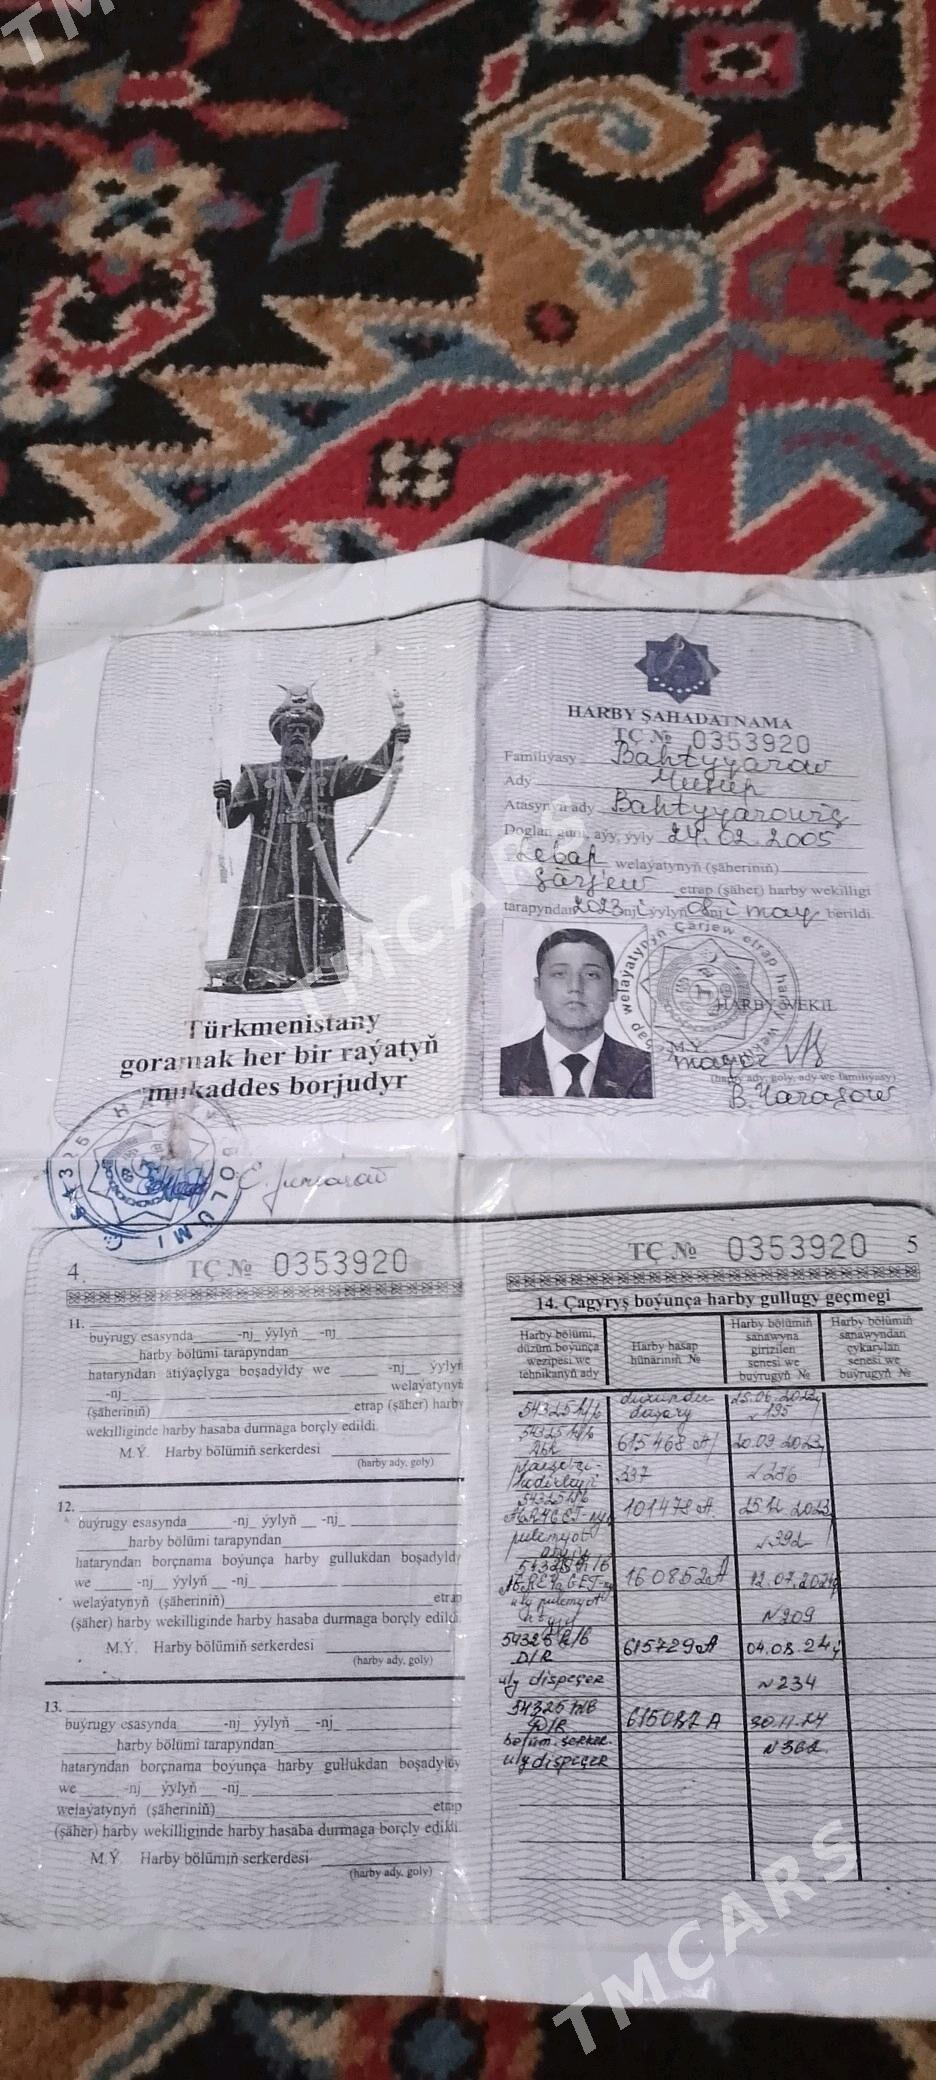 TMCARS
HARBY ŞAHADATNAMA
TÇ № 0353920
Familiýasy Bahtyyarow
Ady Yusup
Atasynyň ady Bahtyyarowiç
Doglan güni, aýy, ýyly 24.02.2005
Lebap welaýatynyň (şäheriniň)
Çärjew etrap (şäher) harby wekilligi
tarapyndan 2023 nji ýylyň 08 nji maý berildi.
welaýatynyň Çärjew etrap harby
HARBY WEKIL
M.Ý.
maýor
(harby ady, goly, ady we familiýasy)
TMCARS
Türkmenistany
goramak her bir raýatyň
mukaddes borjudyr
4. TÇ № 0353920
11.
buýrugy esasynda -nj ýylyň -nj
harby bölümi tarapyndan
hataryndan ätiýaçlyga boşadyldy we -nj ýylyň
-nj welaýatynyň
(şäheriniň) etrap (şäher) harby
wekilliginde harby hasaba durmaga borçly edildi.
M.Ý. Harby bölümiň serkerdesi
(harby ady, goly)
12.
buýrugy esasynda -nj ýylyň -nj
harby bölümi tarapyndan
hataryndan borçnama boýunça harby gullukdan boşadyldy
we -nj ýylyň -nj
welaýatynyň (şäheriniň) etrap
(şäher) harby wekilliginde harby hasaba durmaga borçly edildi.
M.Ý. Harby bölümiň serkerdesi
(harby ady, goly)
13.
buýrugy esasynda -nj ýylyň -nj
harby bölümi tarapyndan
hataryndan borçnama boýunça harby gullukdan boşadyldy
we -nj ýylyň -nj
welaýatynyň (şäheriniň) etrap
(şäher) harby wekilliginde harby hasaba durmaga borçly edildi.
M.Ý. Harby bölümiň serkerdesi
(harby ady, goly)
TÇ № 0353920 5
14. Çagyryş boýunça harby gullugy geçmegi
Harby bölümi, düzüm boýunça wezipesi we tehnikanyň ady
Harby hasap hünäriniň №
Harby bölümiň sanawyna girizilen senesi we buýrugyň №
Harby bölümiň sanawyndan çykarylan senesi we buýrugyň №
54325 h/b
№ 195
54325 h/b 615468 A 20.09.2023
№ 276
54325 h/b 101478 A 25.12.2023
pulemýot № 392
54325 h/b 160852 A 12.07.2024
uly pulemýot № 209
54325 h/b 615729 A 04.08.24
D/R
uly dispeçer № 234
54325 h/b 30.11.24
D/R
bölüm. serker. № 362
uly dispeçer
TMCARS